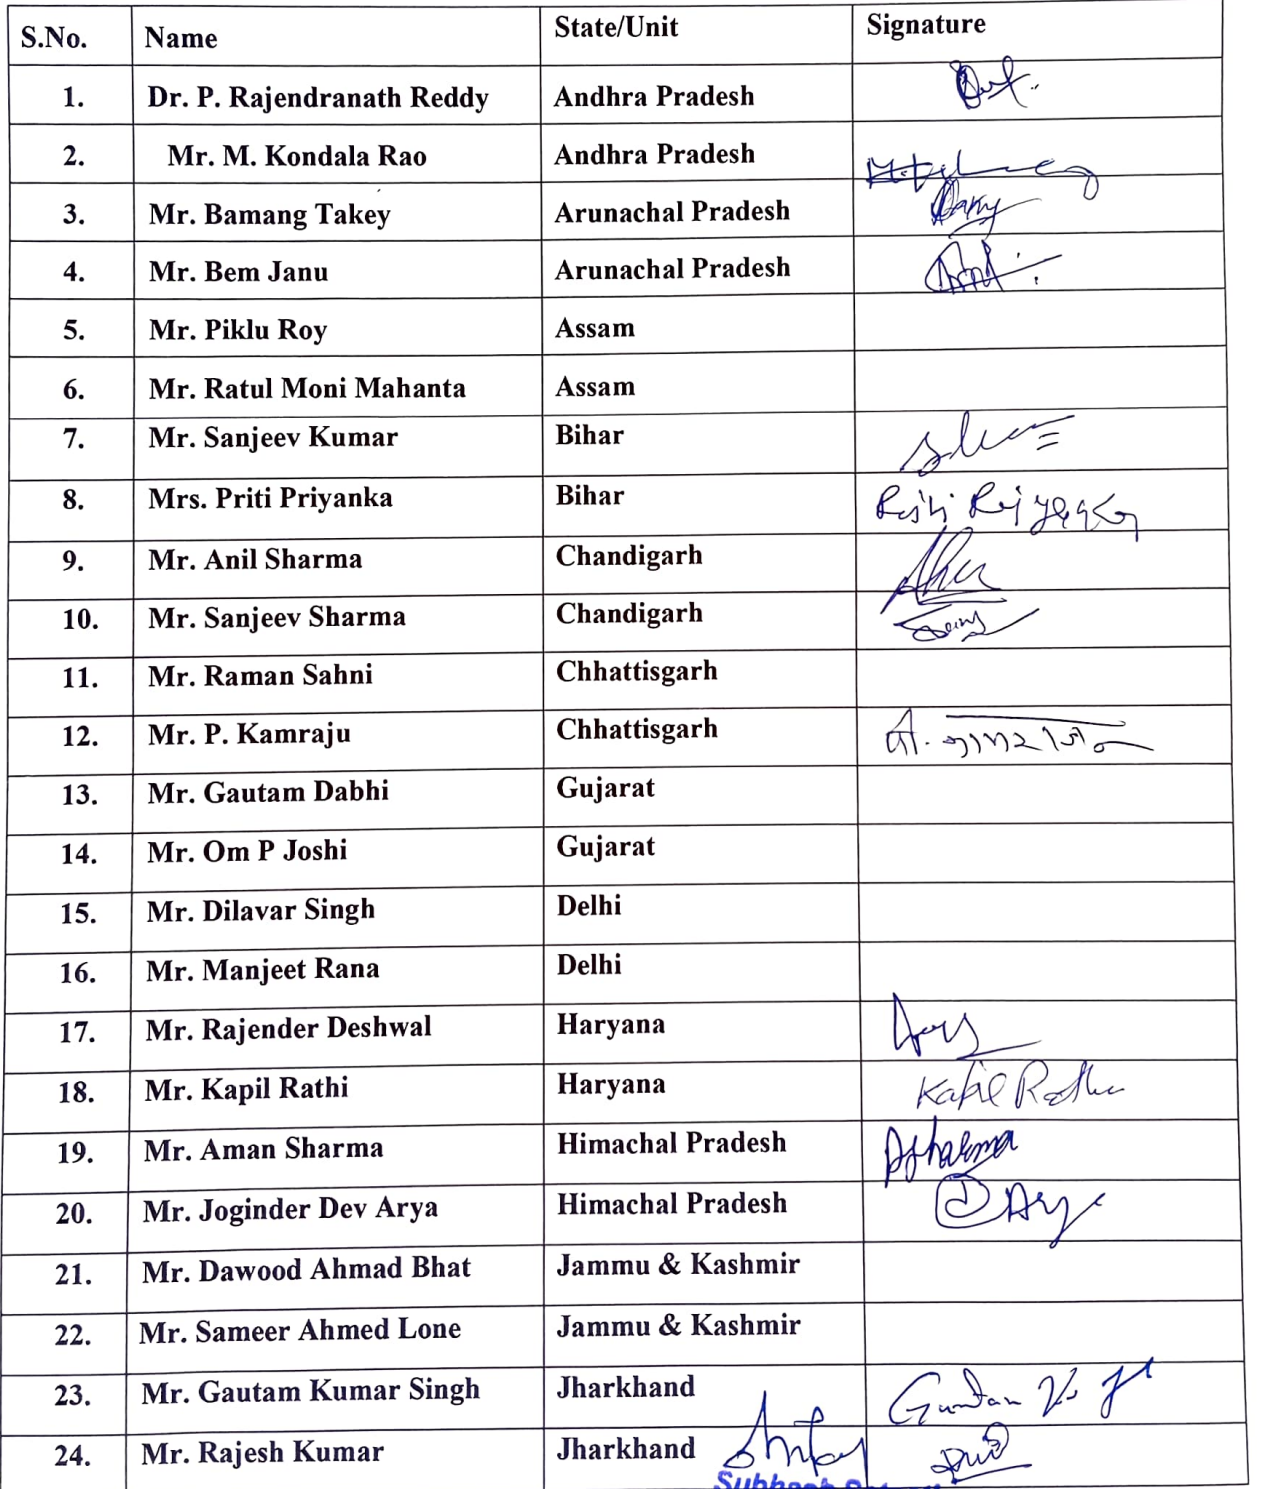 S.No. Name State/Unit Signature
1. Dr. P. Rajendranath Reddy Andhra Pradesh
2. Mr. M. Kondala Rao Andhra Pradesh
3. Mr. Bamang Takey Arunachal Pradesh
4. Mr. Bem Janu Arunachal Pradesh
5. Mr. Piklu Roy Assam
6. Mr. Ratul Moni Mahanta Assam
7. Mr. Sanjeev Kumar Bihar
8. Mrs. Priti Priyanka Bihar
9. Mr. Anil Sharma Chandigarh
10. Mr. Sanjeev Sharma Chandigarh
11. Mr. Raman Sahni Chhattisgarh
12. Mr. P. Kamraju Chhattisgarh
13. Mr. Gautam Dabhi Gujarat
14. Mr. Om P Joshi Gujarat
15. Mr. Dilavar Singh Delhi
16. Mr. Manjeet Rana Delhi
17. Mr. Rajender Deshwal Haryana
18. Mr. Kapil Rathi Haryana Kapil Rathi
19. Mr. Aman Sharma Himachal Pradesh Asharma
20. Mr. Joginder Dev Arya Himachal Pradesh
21. Mr. Dawood Ahmad Bhat Jammu & Kashmir
22. Mr. Sameer Ahmed Lone Jammu & Kashmir
23. Mr. Gautam Kumar Singh Jharkhand
24. Mr. Rajesh Kumar Jharkhand